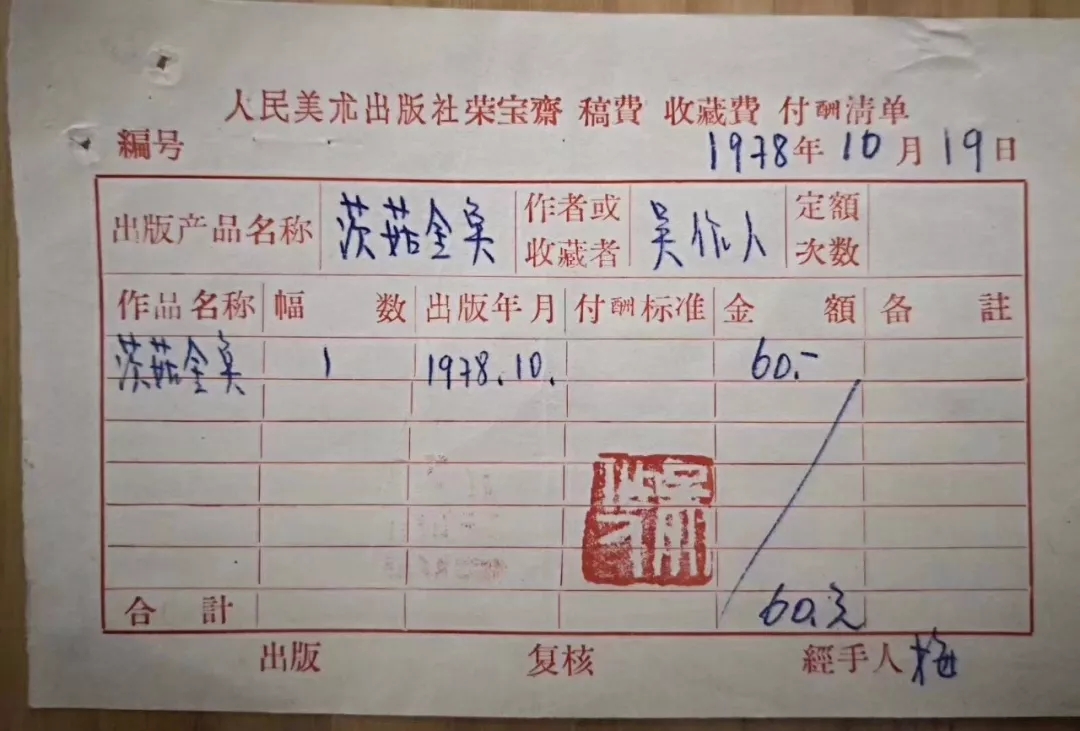 人民美朮出版社荣宝齋 稿費 收藏費 付酬清单
編号
1978年10月19日
出版产品名称 茨菇金臭 作者或收藏者 吴作人 定額次数
作品名称 幅数 出版年月 付酬标准 金額 备註
茨菇金臭 1 1978.10. 60.-
合計 60.元
出版 复核 經手人 梅